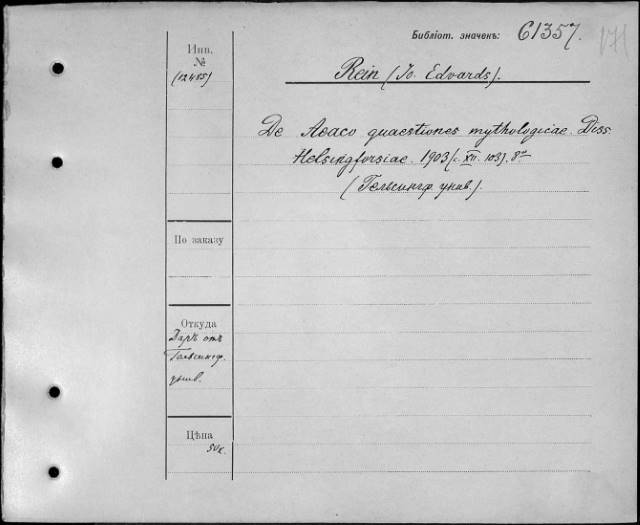 Библіот. значекъ: 61357.
171
Инв.
№
(12455)
Rein (Io. Edvards).
De Aeaco quaestiones mythologicae. Diss.
Helsingforsiae. 1903 (с. XII. 103). 8°
(Гельсингф. унив.).
По заказу
Откуда
Даръ отъ
Гельсингф.
унив.
Цѣна
50к.